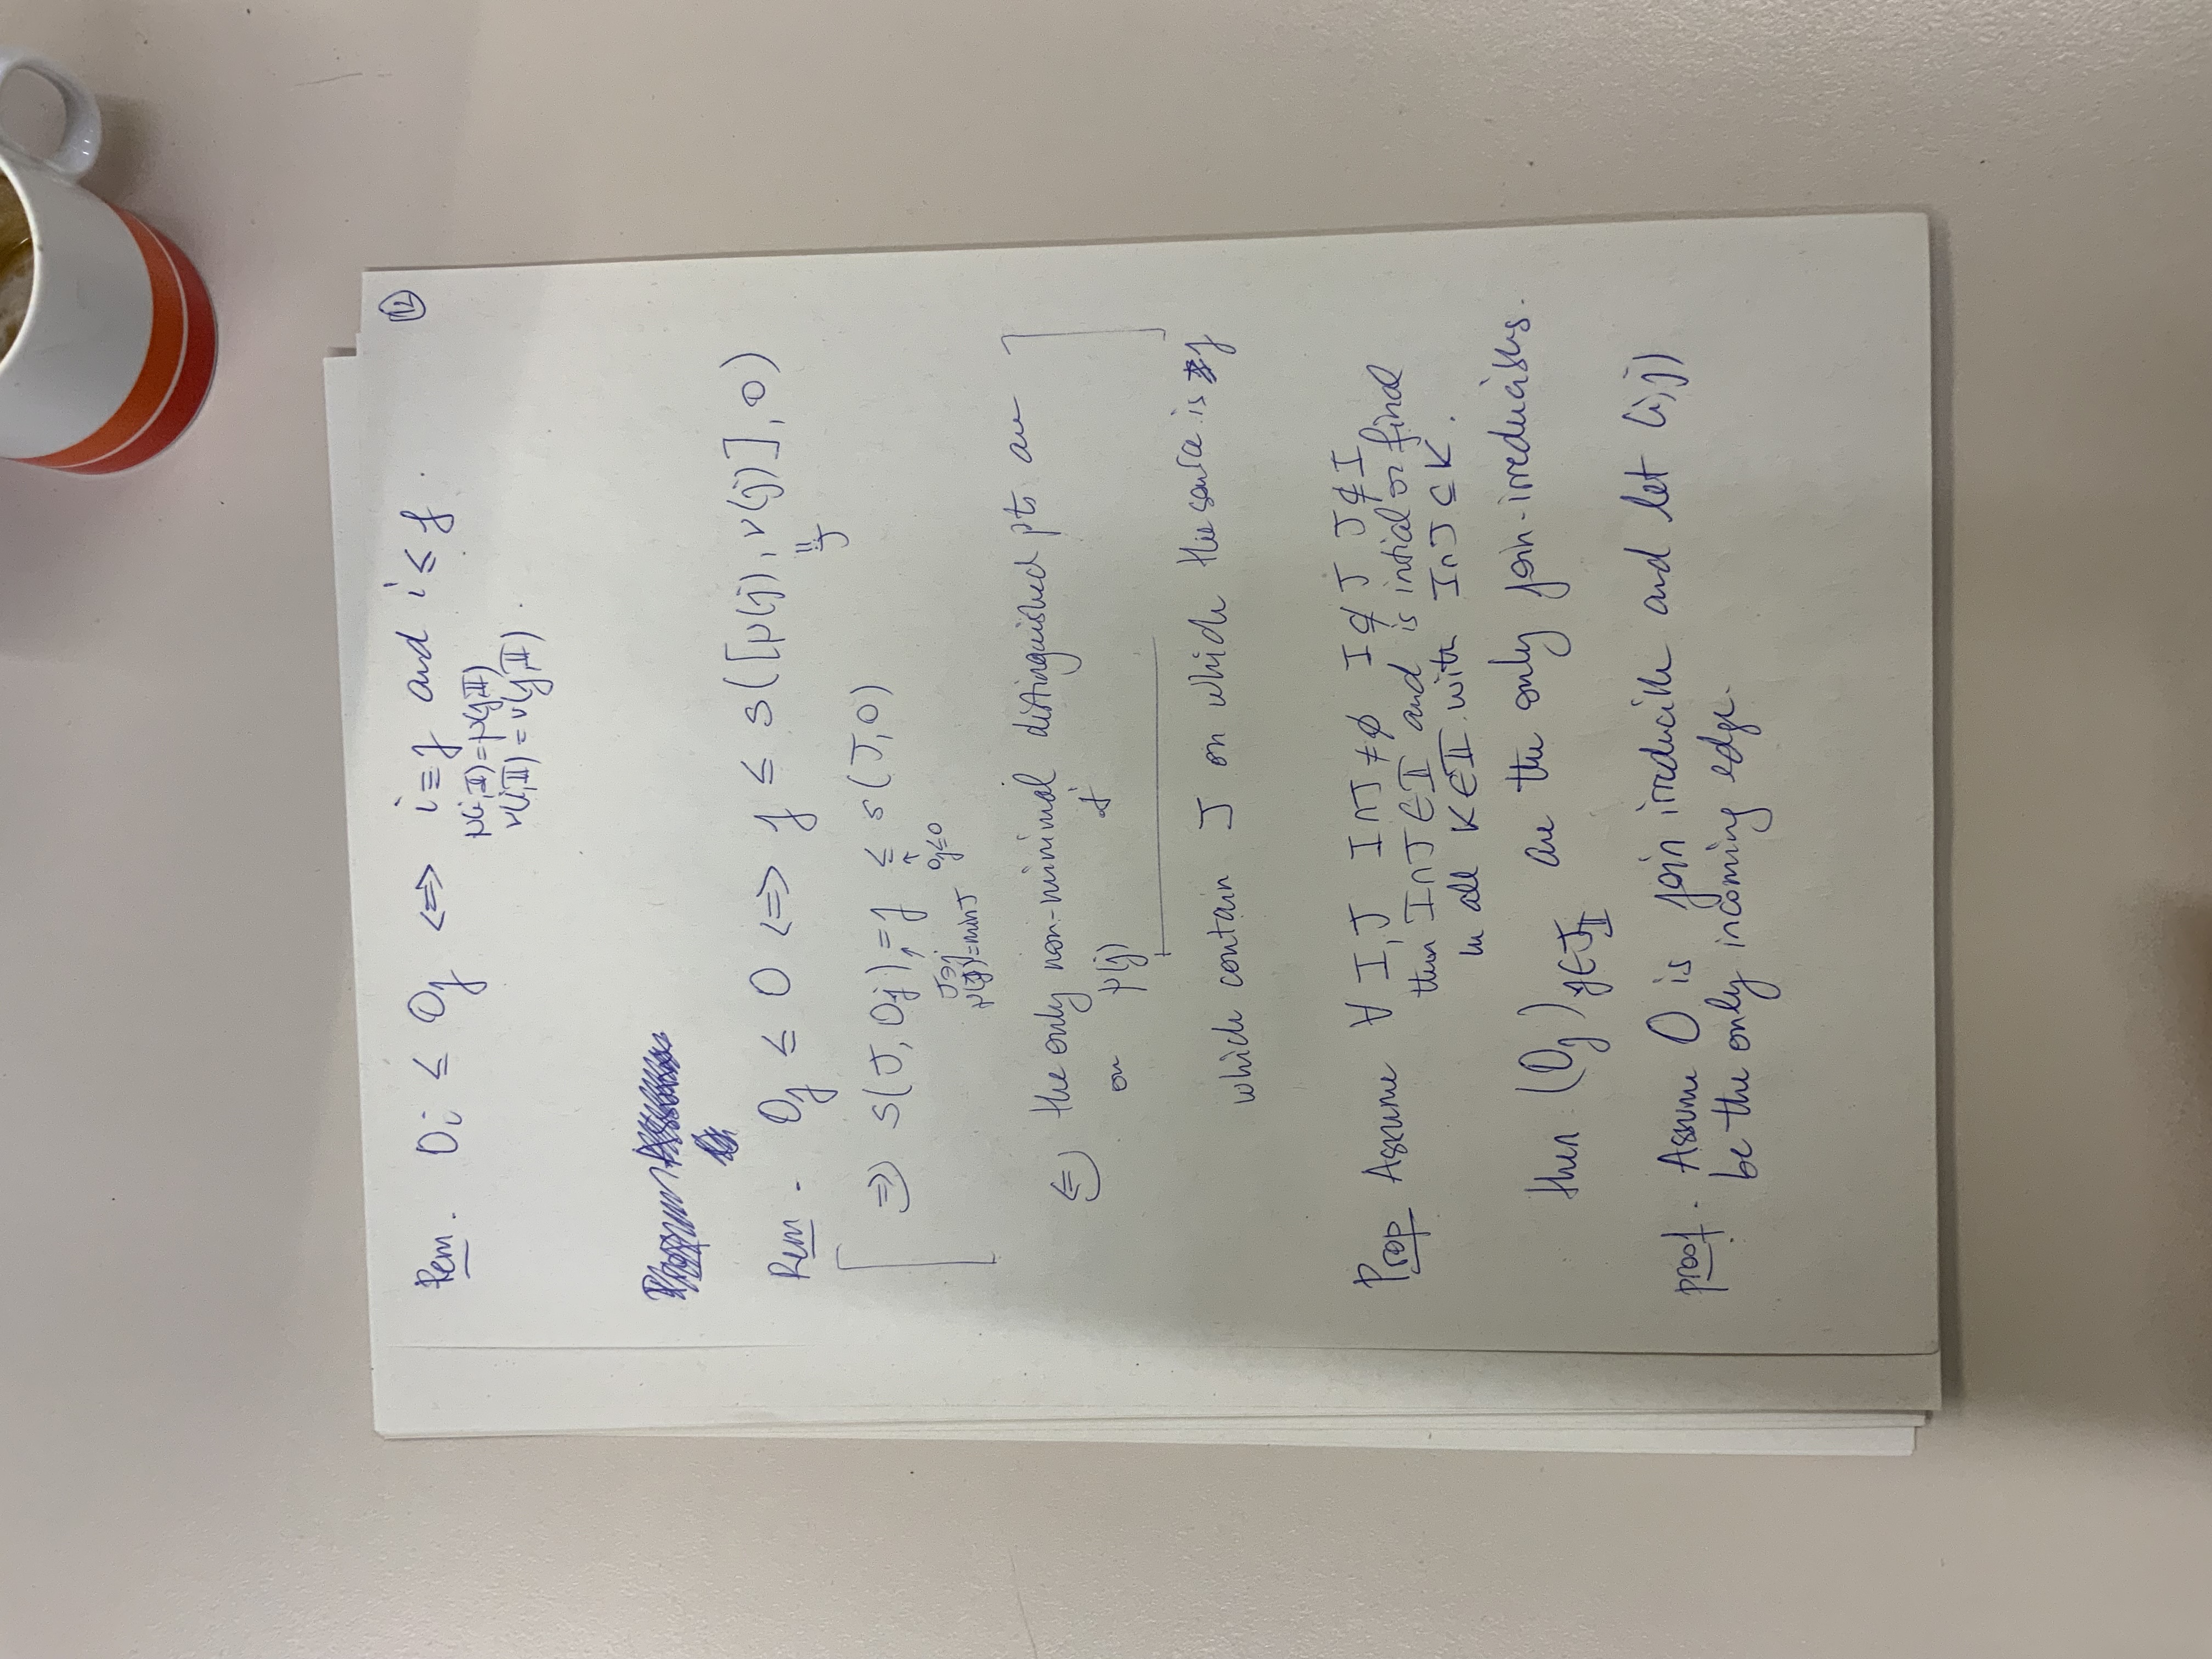 12
Rem. O_i ≤ O_j <=> i ≡ j and i ≤ j.
μ(i,𝕀) = μ(j,𝕀)
ν(i,𝕀) = ν(j,𝕀).
Rem. O_j ≤ O <=> j ≤ s([μ(j), ν(j)], O)
"J
=>) s(J, O_j) = j ≤ s(J, O)
J∋j O_j≤O
= min J
<=) the only non-minimal distinguished pts are
on μ(j) j
which contain J on which the source is j
Prop Assume ∀ I, J I∩J ≠ ∅ I ⊄ J J ⊄ I
then I∩J ∈ 𝕀 and is initial or final
in all K ∈ 𝕀 with I∩J ⊆ K.
then (O_j)_{j∈J_𝕀} are the only join-irreducibles.
proof. Assume O is join irreducible and let (i,j)
be the only incoming edge.